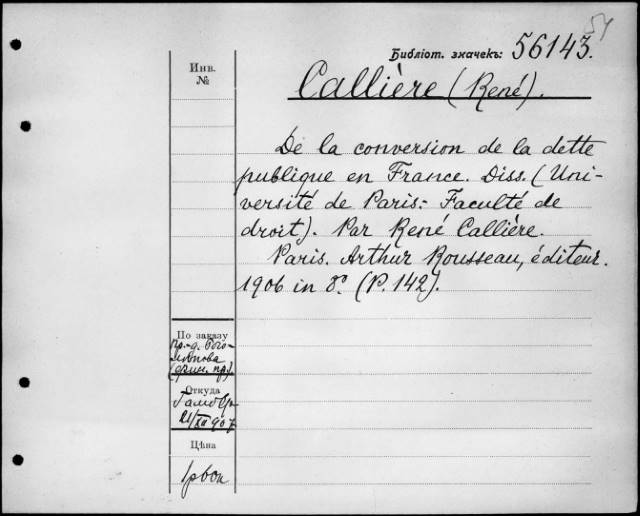 54
Библіот. значекъ: 56143.
Инв.
№
Callière (René).
De la conversion de la dette
publique en France. Diss. (Uni-
versité de Paris: Faculté de
droit). Par René Callière.
Paris. Arthur Rousseau, éditeur.
1906 in 8º. (P. 142).
По заказу
пр.-д. Бого-
лѣпова
(фин. пр.)
Откуда
21/XII 907
Цѣна
1р60к